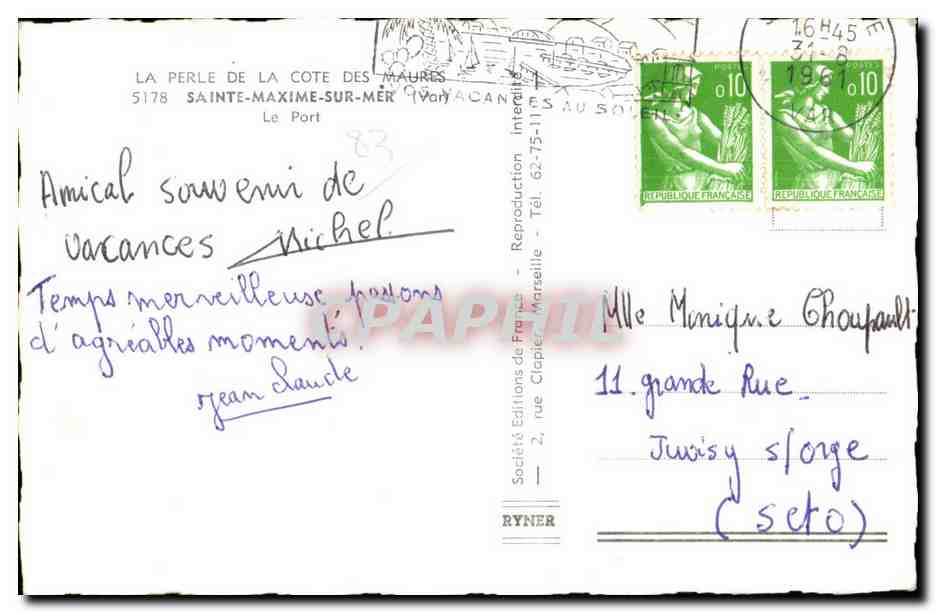 LA PERLE DE LA COTE DES MAURES
5178 SAINTE-MAXIME-SUR-MER (Var)
Le Port
83
Amical souvenir de
vacances Michel
Temps merveilleuse, passons
d'agréables moments!
jean claude
Société Editions de France - Reproduction interdite
— 2, rue Clapier, Marseille - Tél. 62-75-11 —
RYNER
VACANCES AU SOLEIL
16H45
31-8
1961
VAR
POSTES
0,10
REPUBLIQUE FRANÇAISE
POSTES
0,10
REPUBLIQUE FRANÇAISE
CPAPHIL
Mlle Monique Choupault
11. grande Rue.
Juvisy s/orge
(Seto)